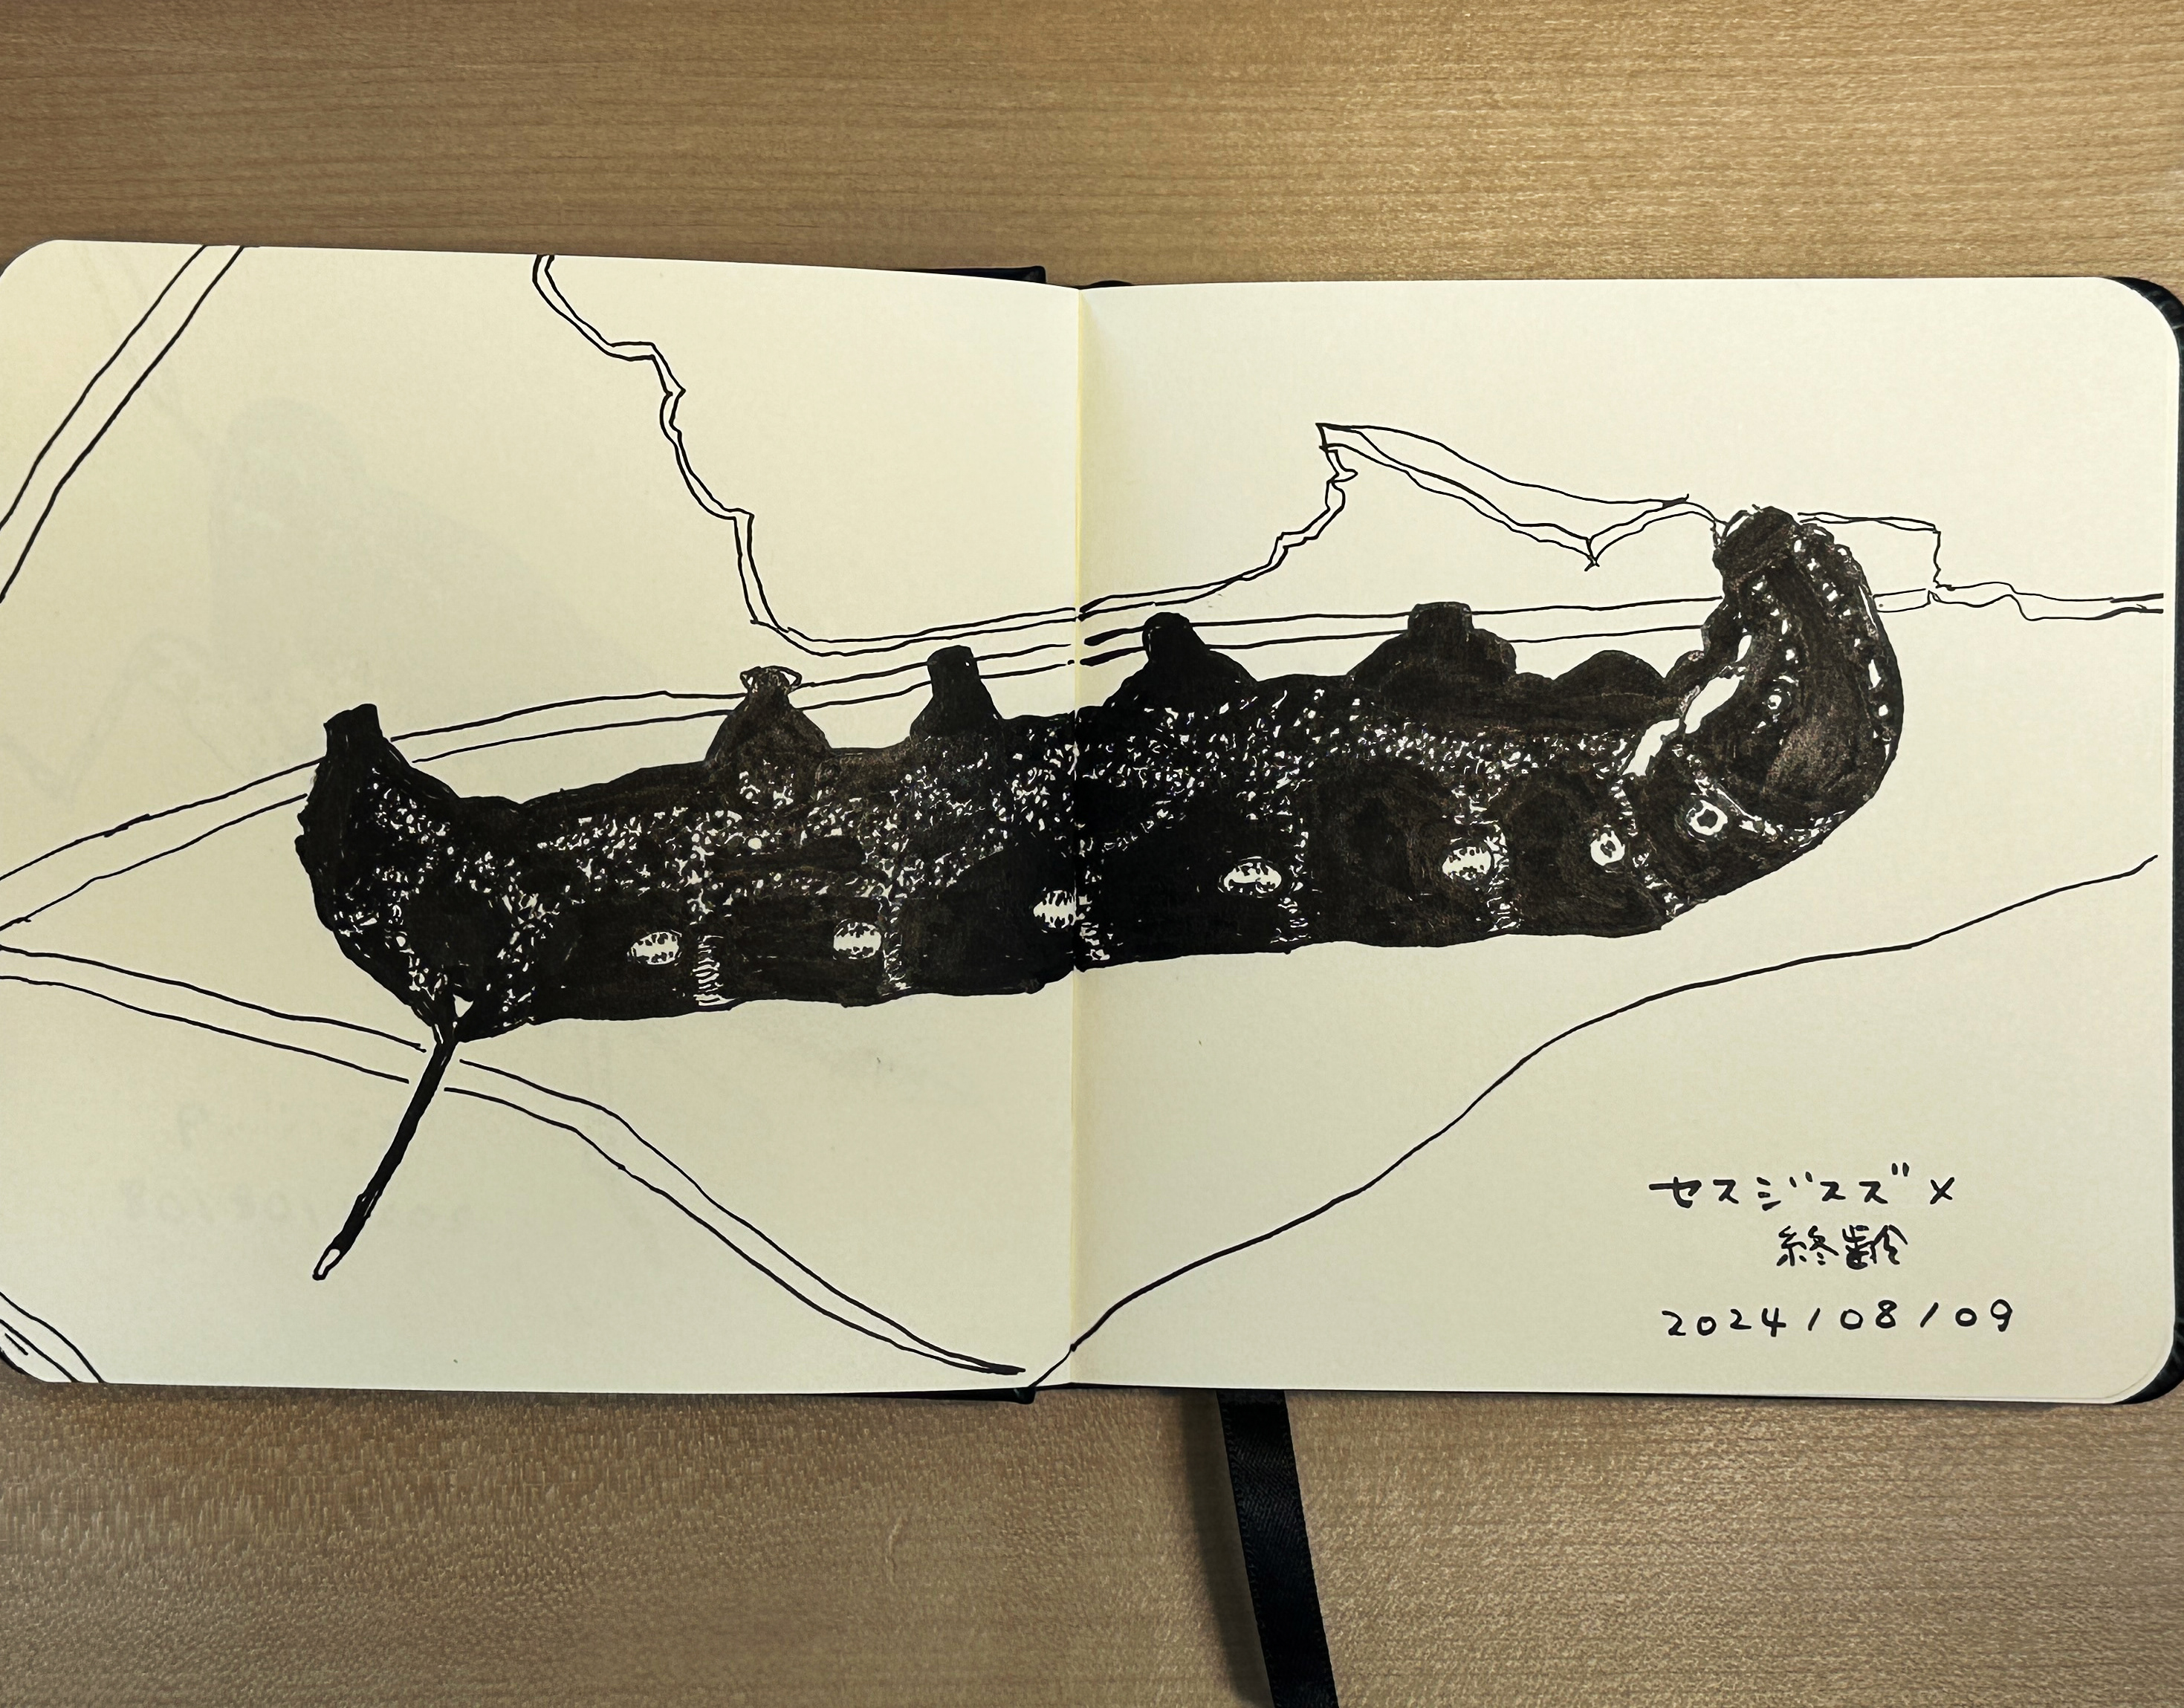 セスジスズメ
終齢
2024/08/09